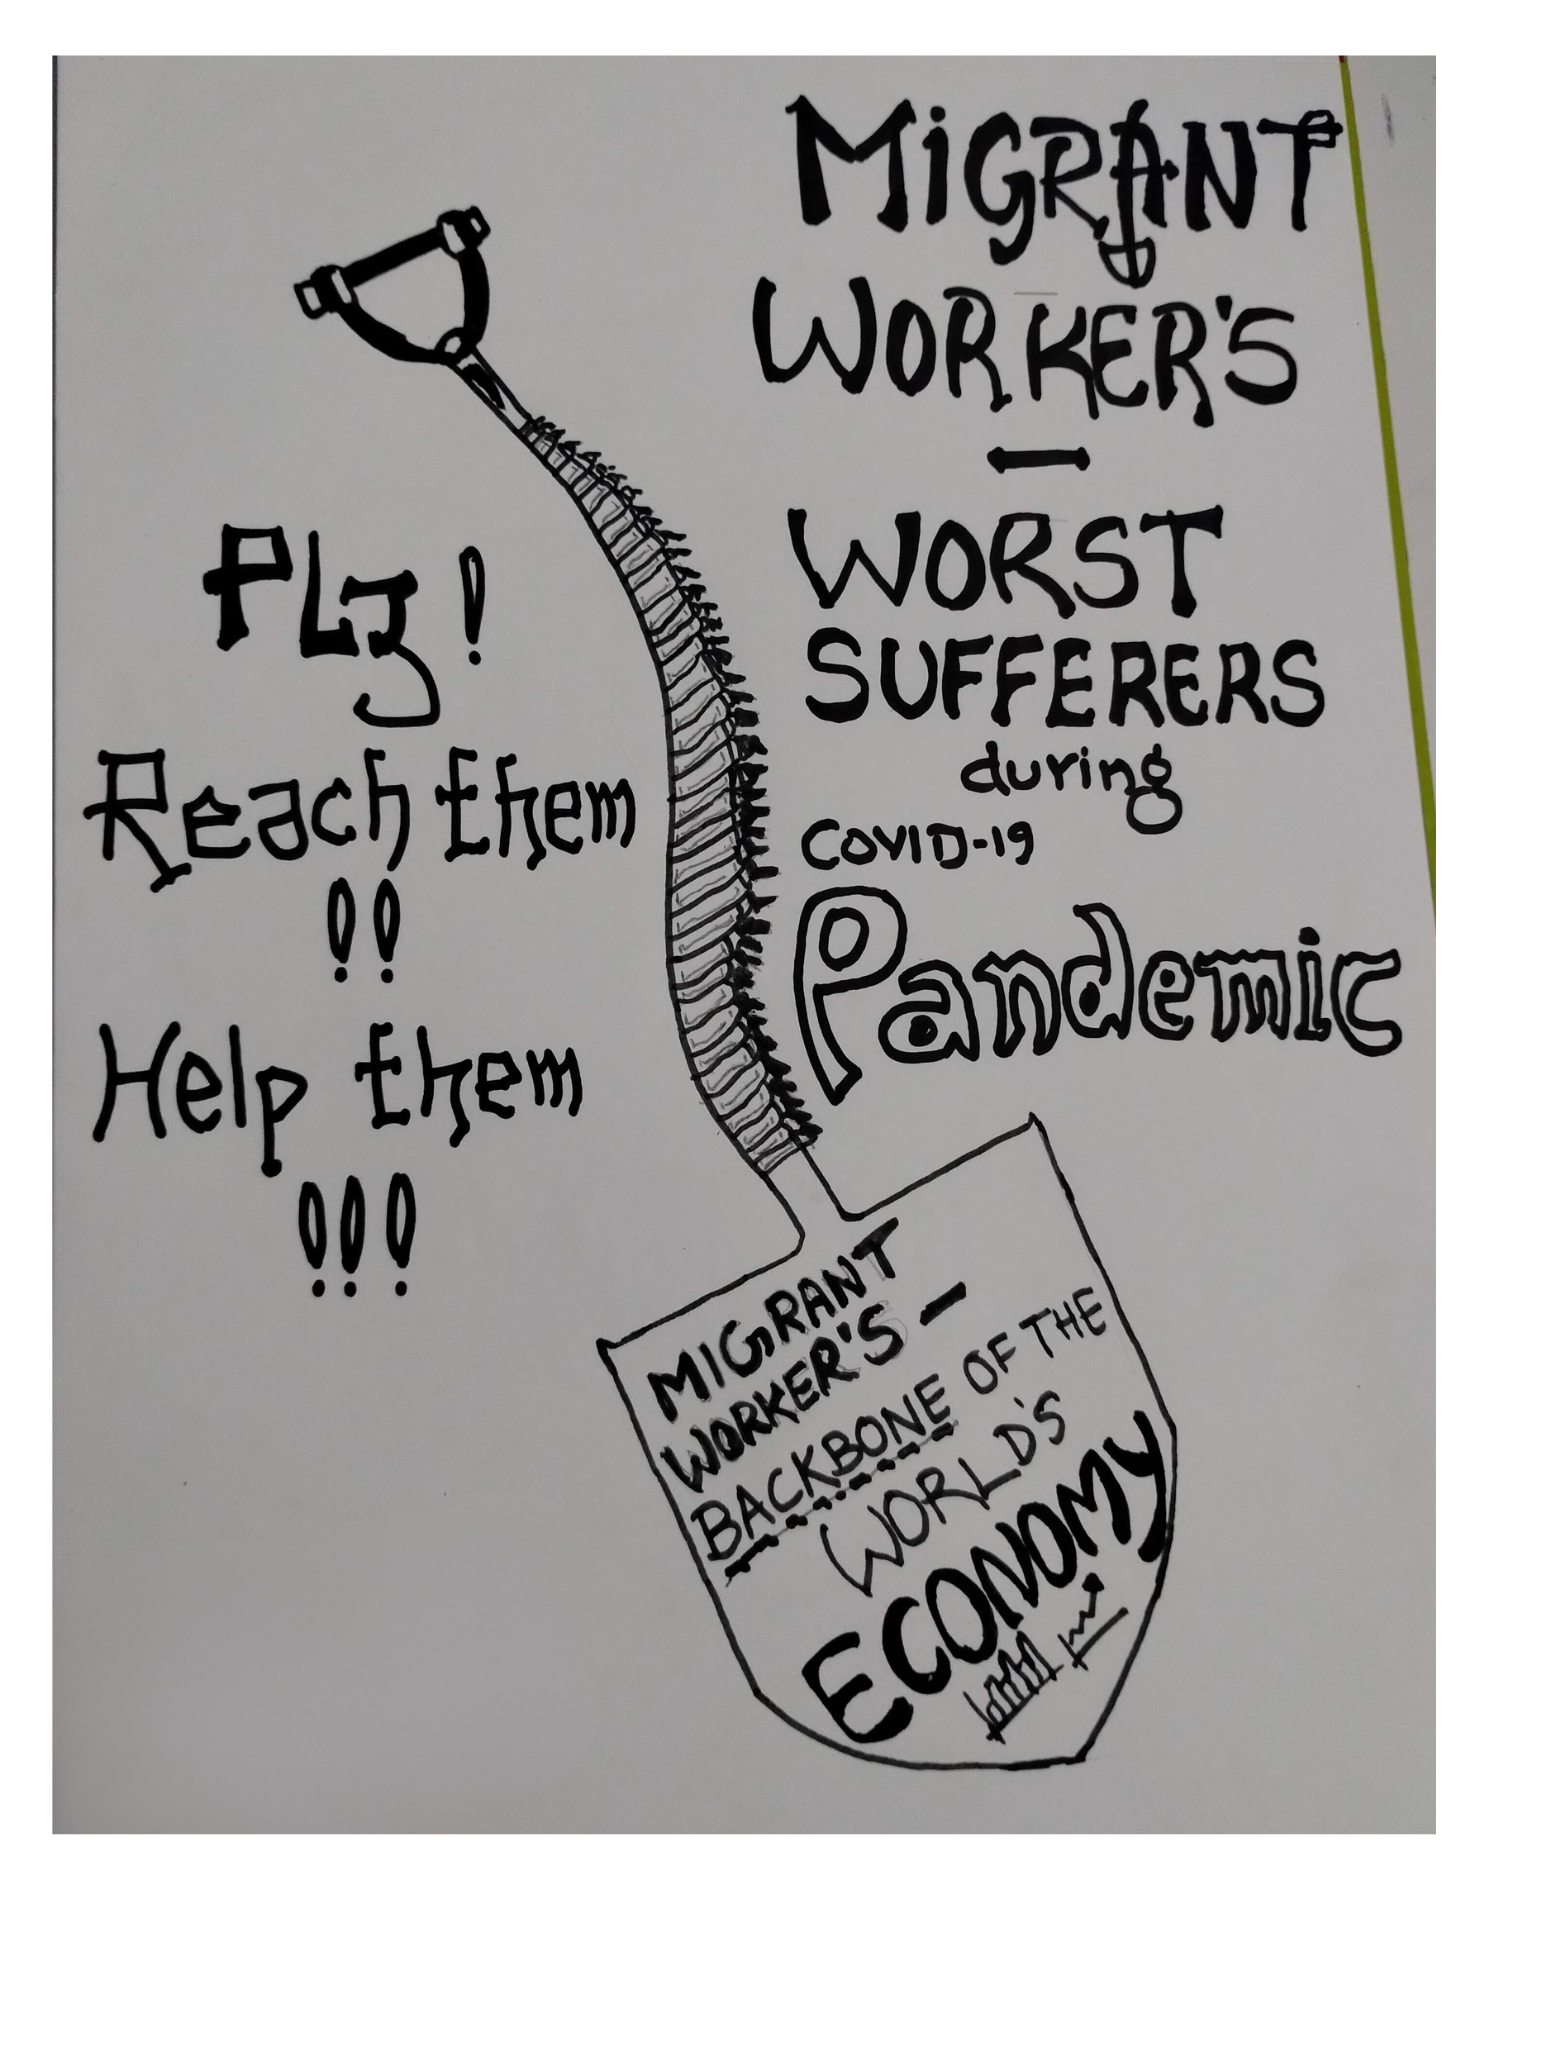 MiGRANT
WORKER'S
—
WORST
SUFFERERS
during
COVID-19
Pandemic
PLz!
Reach them
!!
Help them
!!!
MIGRANT
WORKER'S —
BACKBONE OF THE
WORLD'S
ECONOMY